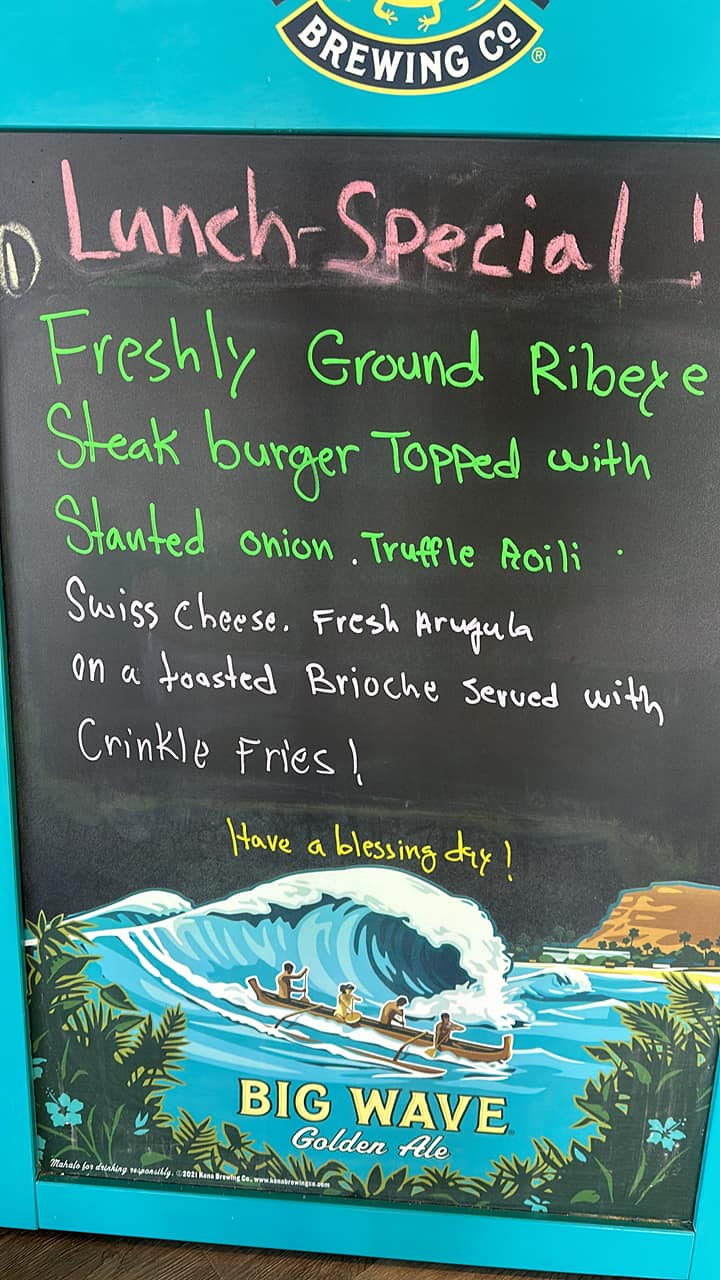 BREWING CO ®
1 Lunch-Special !
Freshly Ground Ribeye
Steak burger Topped with
Stauted onion . Truffle Aoili .
Swiss cheese. Fresh Arugula
on a toasted Brioche Served with
Crinkle Fries !
Have a blessing day !
BIG WAVE
Golden Ale
Mahalo for drinking responsibly. ©2021 Kona Brewing Co. www.konabrewingco.com